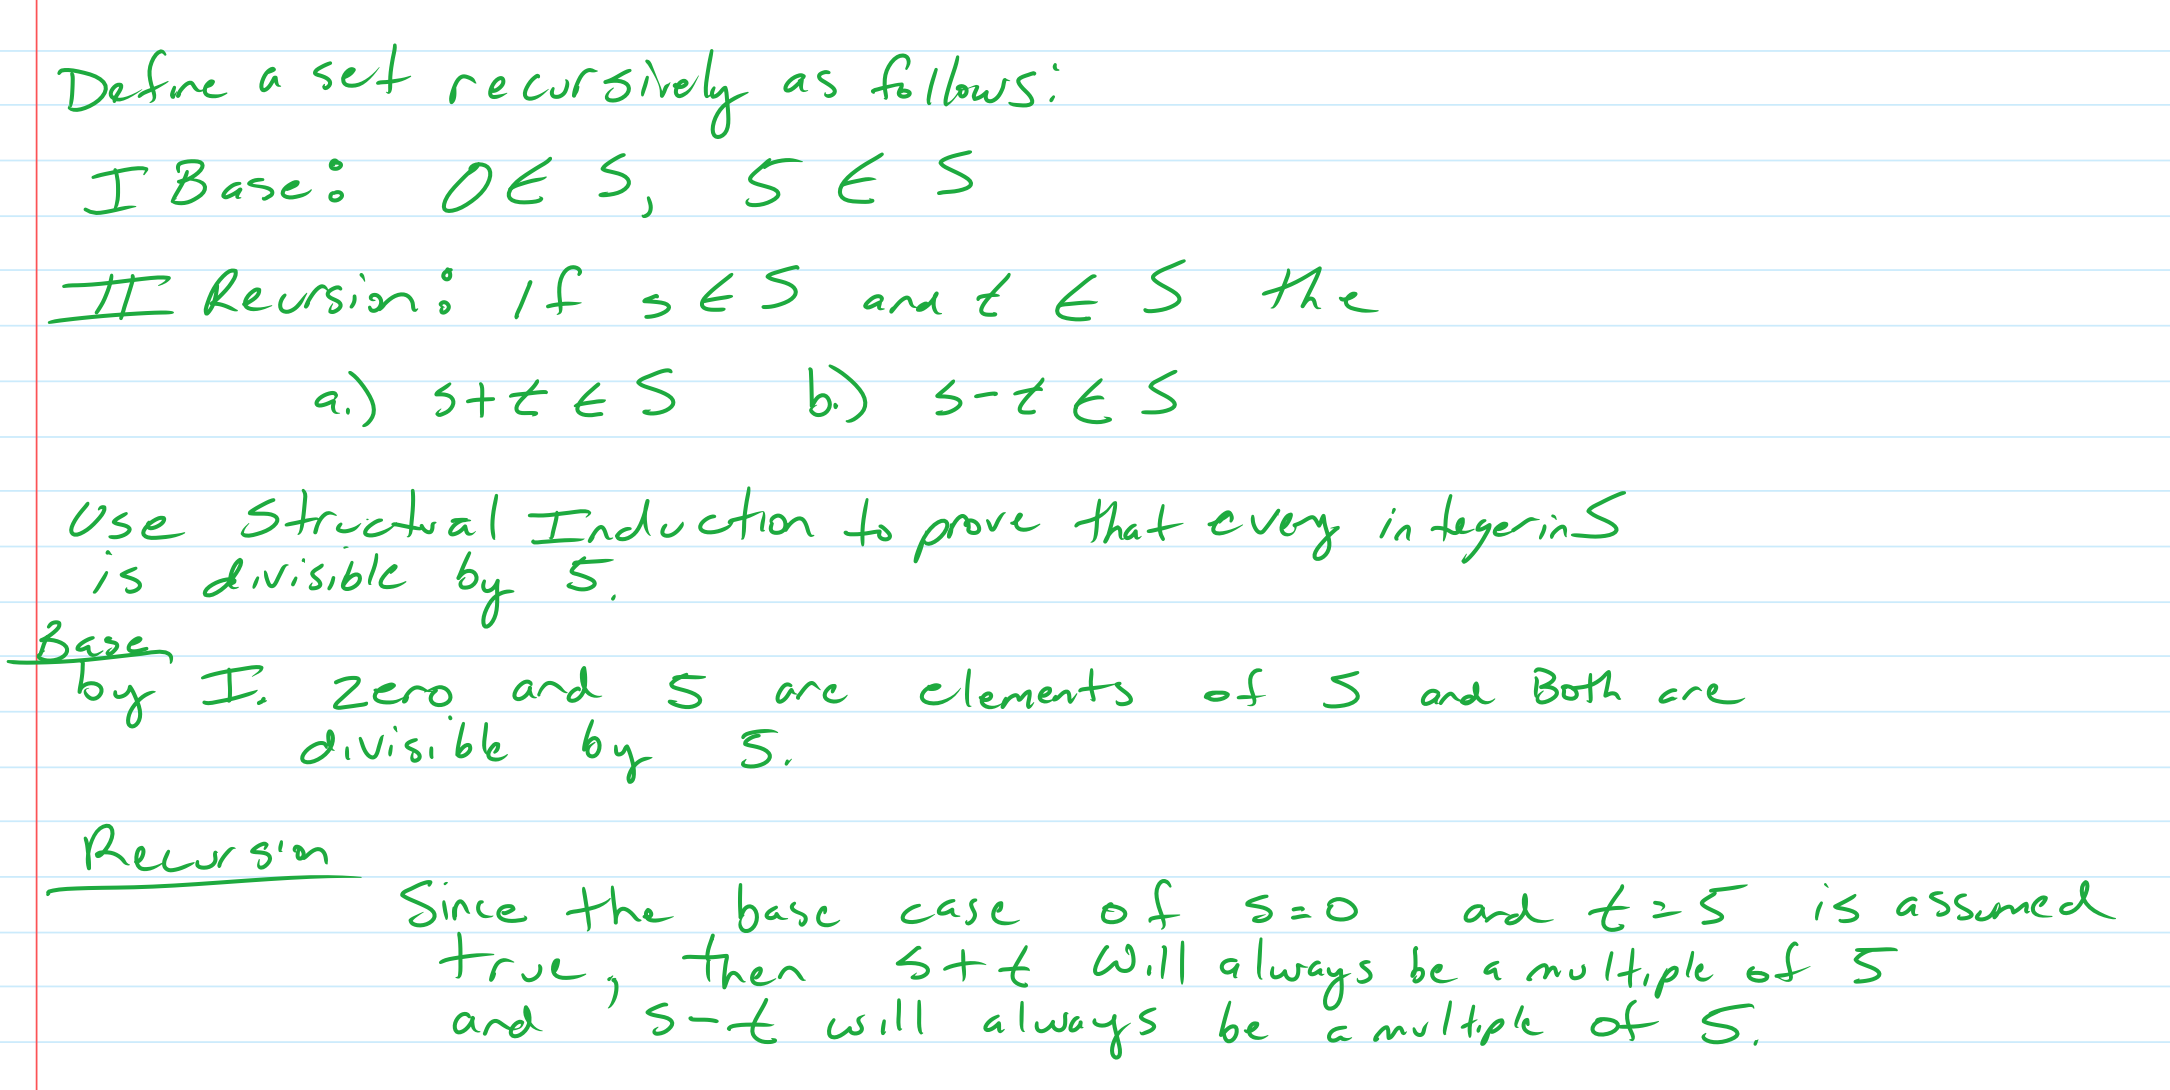 Define a set recursively as follows:
I Base: 0 ∈ S, 5 ∈ S
II Recursion: If s ∈ S and t ∈ S the
a.) s+t ∈ S b.) s-t ∈ S
Use Structural Induction to prove that every integer in S
is divisible by 5.
Base
by I. zero and 5 are elements of S and Both are
divisible by 5.
Recursion
Since the base case of s=0 and t=5 is assumed
true, then s+t will always be a multiple of 5
and s-t will always be a multiple of 5.